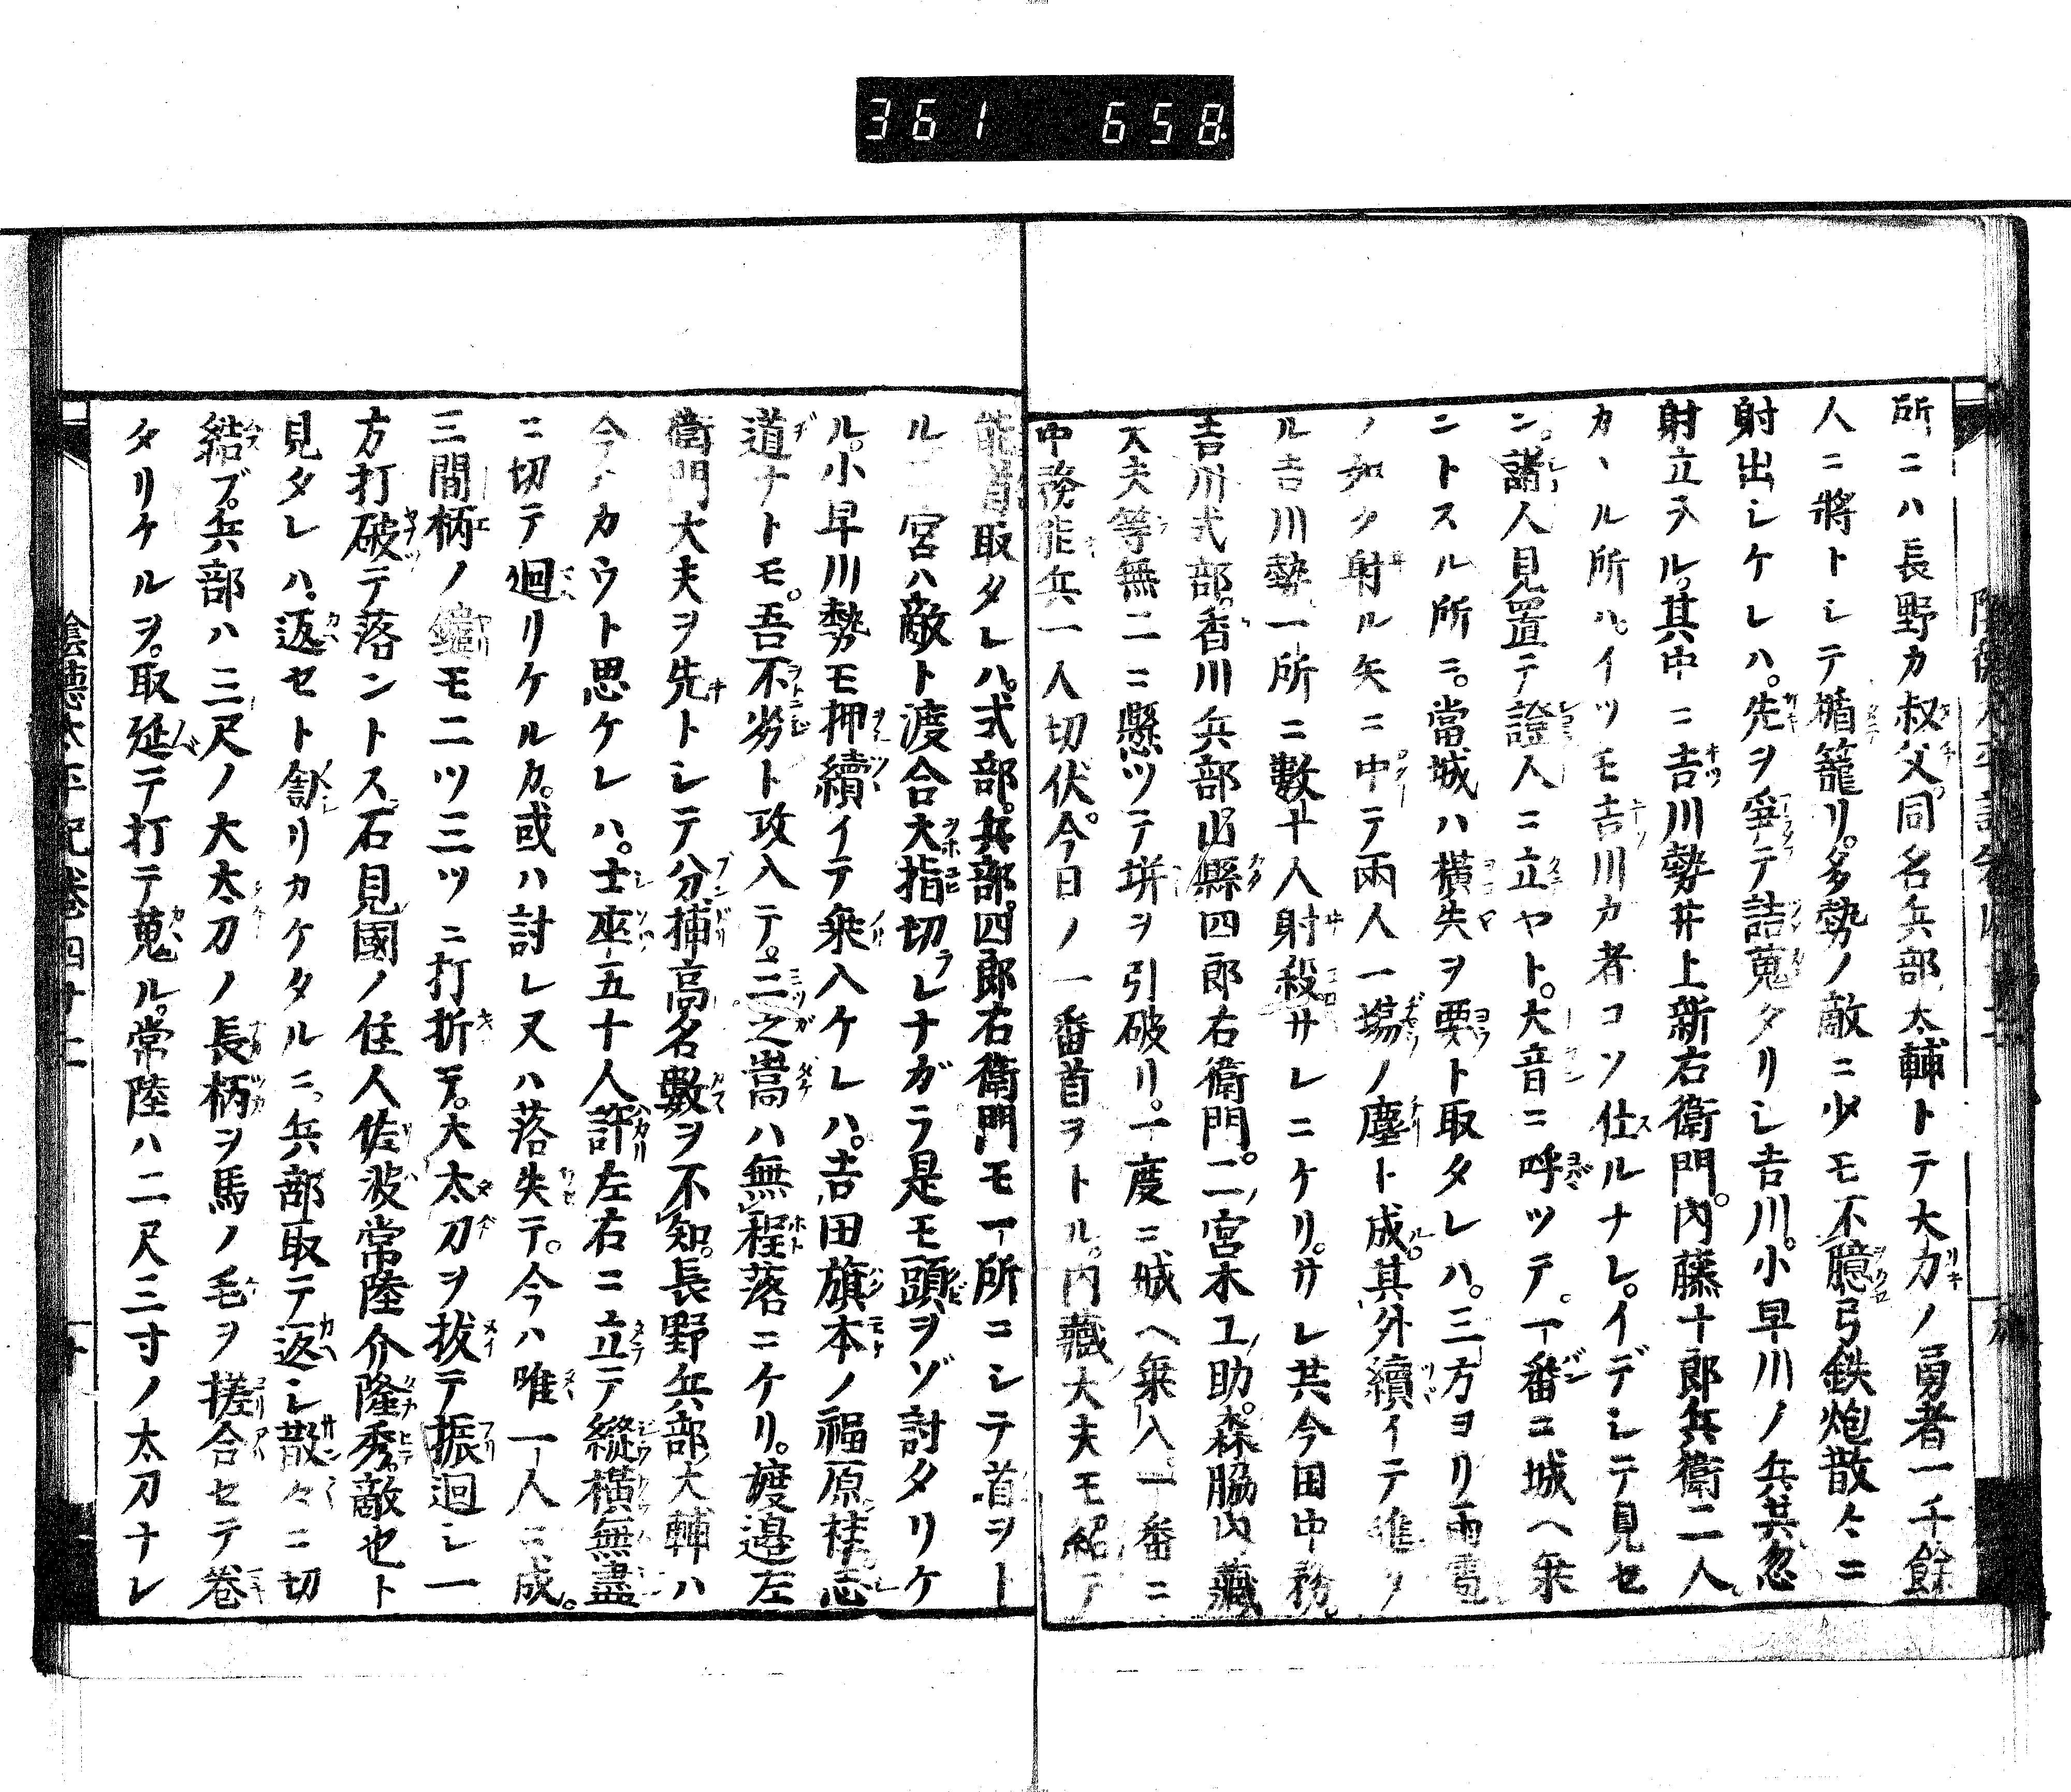 361 658.
所ニハ長野カ叔父。同名兵部太輔トテ大力ノ勇者一千餘
人ニ將トシテ楯籠リ。多勢ノ敵ニ少モ不臆弓鉄炮散々ニ
射出シケレハ。先ヲ爭テ詰蒐タリシ吉川。小早川ノ兵共忽
射立ラル。其中ニ吉川勢井上新右衛門。内藤十郎兵衛二人。
カヽル所ハ。イツモ吉川カ者コソ仕ルナレ。イデシテ見セ
ン。諸人見置テ證人ニ立ヤト。大音ニ呼ツテ。一番ニ城ヘ乗
ントスル所ニ。當城ハ横矢ヲ要ト取タレハ。三方ヨリ雨雹
ノ如ク射ル矢ニ中テ兩人一場ノ塵ト成。其外續イテ進ノ
ル吉川勢一所ニ數十人射殺サレニケリ。サレ共今田中務
吉川式部。香川兵部山縣四郎右衛門。二宮木工助。森脇内藏
大夫等無二ニ懸ツテ塀ヲ引破リ。一度ニ城ヘ乗入一番ニ
中務能兵一人切伏。今日ノ一番首ヲトル。内藏大夫モ紹テ
能首取タレハ。式部。兵部。四郎右衛門モ一所ニシテ首ヲト
ル二宮ハ敵ト渡合大指切ラレナガラ是モ頭ヲゾ討タリケ
ル。小早川勢モ押續イテ乗入ケレハ。吉田旗本ノ福原桂志
道ナトモ。吾不劣ト攻入テ。三之嵩ハ無程落ニケリ。渡邉左
衛門大夫ヲ先トシテ分捕高名數ヲ不知。長野兵部大輔ハ
今ハカウト思ケレハ。士卒五十人許左右ニ立テ縱横無盡
ニ切テ廻リケルカ。或ハ討レ又ハ落失テ。今ハ唯一人ニ成。
三間柄ノ鑓モ二ツ三ツニ打折テ。大太刀ヲ拔テ振廻シ一
方打破テ落ントス石見國ノ住人佐波常陸介隆秀。敵也ト
見タレハ。返セト詈リカケタルニ。兵部取テ返シ散々ニ切
結ブ。兵部ハ三尺ノ大太刀ノ長柄ヲ馬ノ毛ヲ搓合セテ卷
タリケルヲ。取延テ打テ蒐ル。常陸ハ二尺三寸ノ太刀ナレ
陰德太平記卷四十二
十